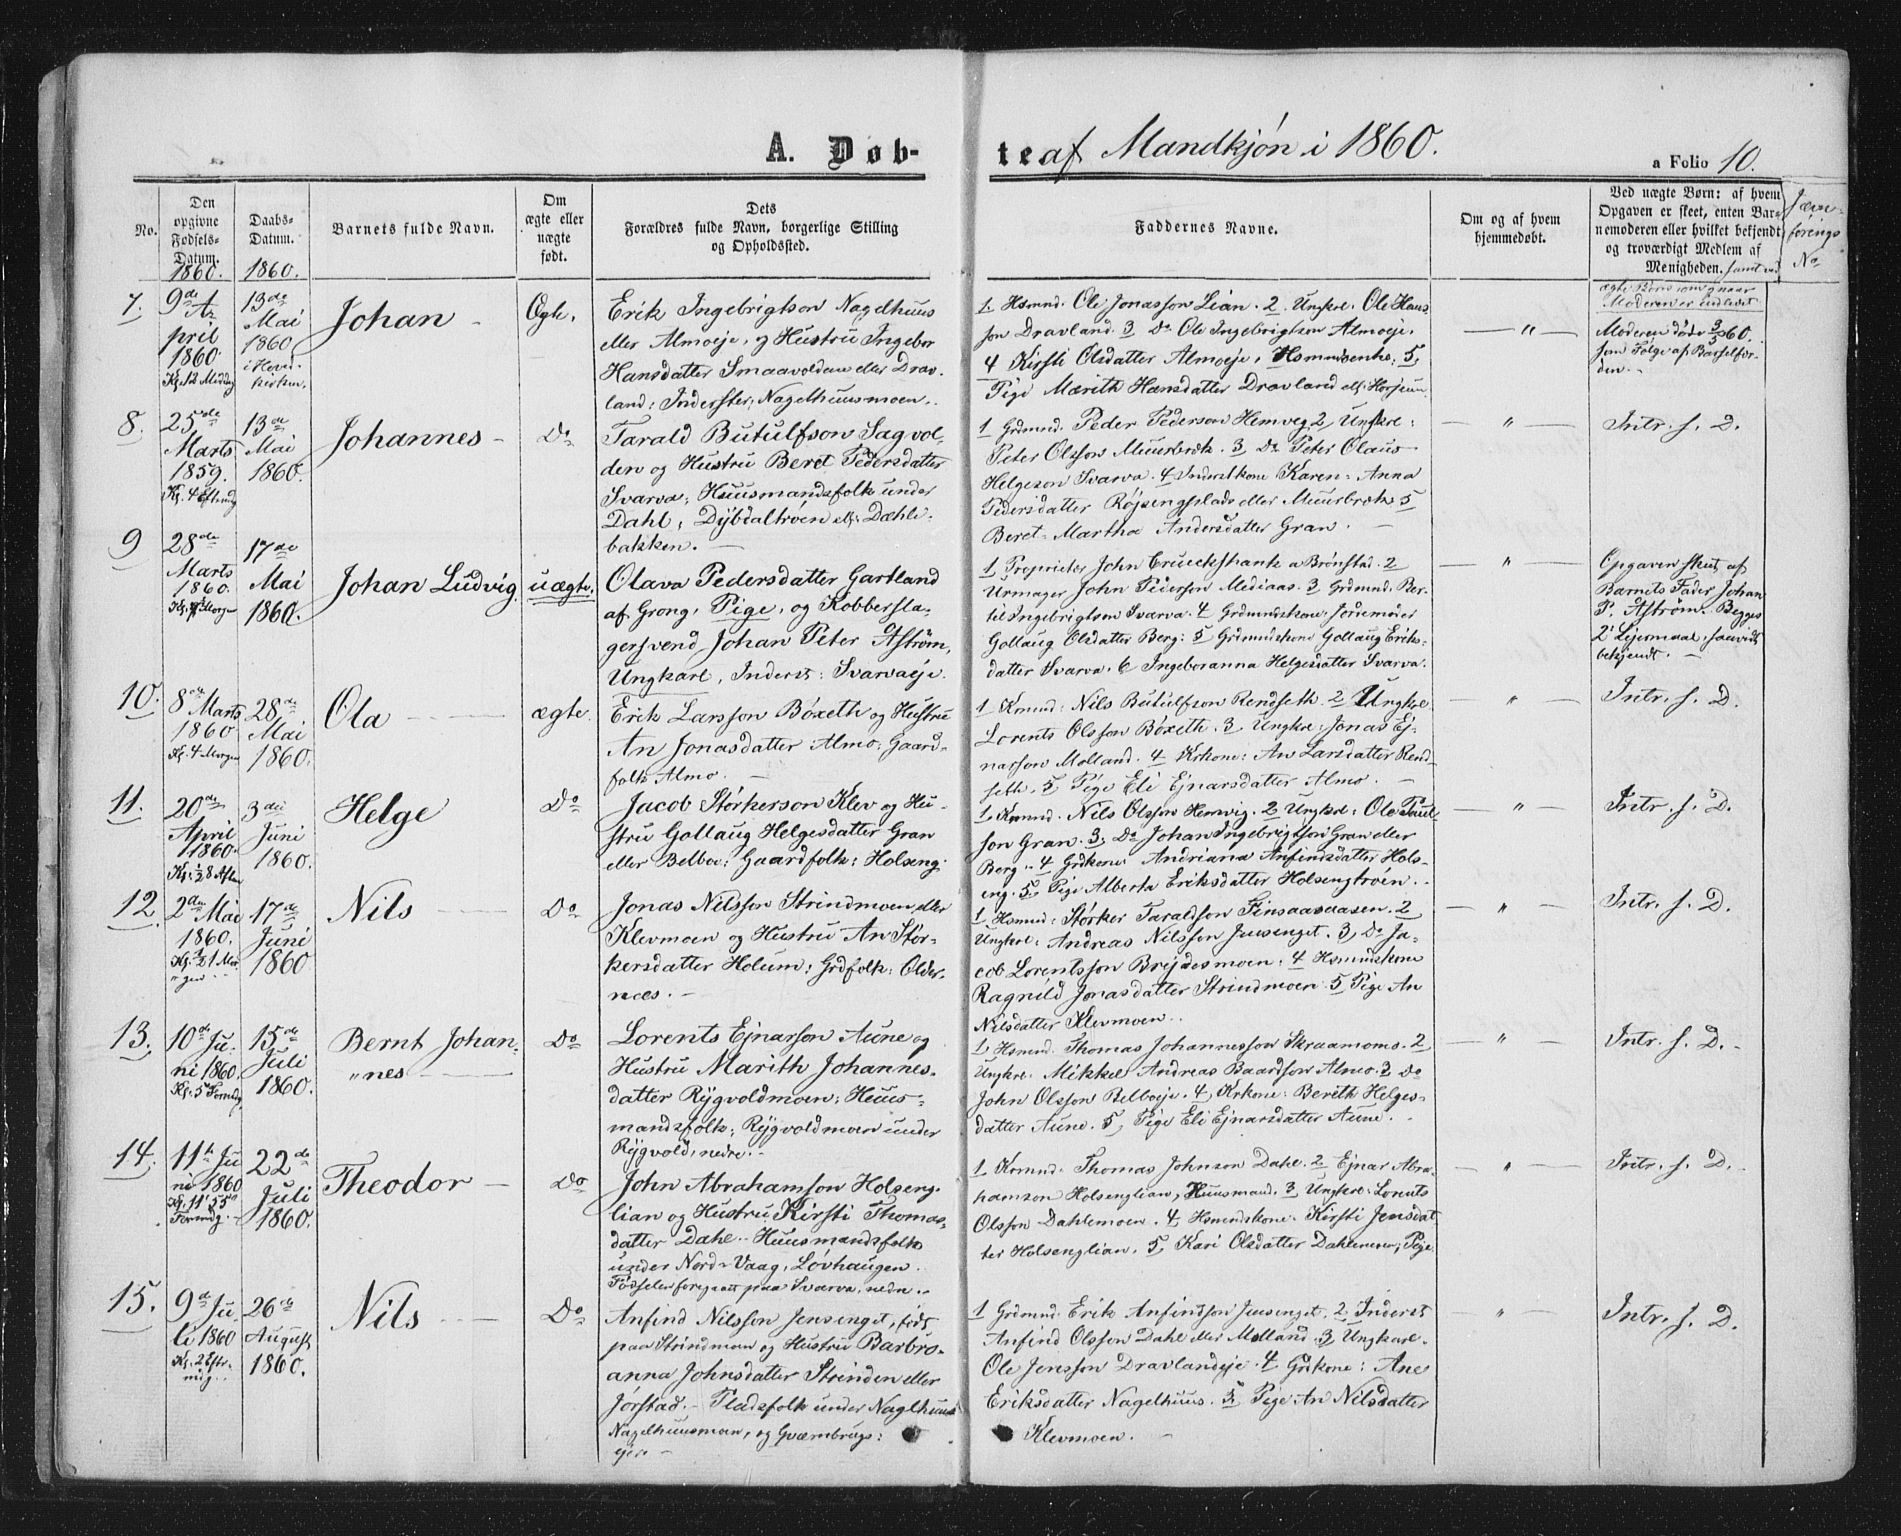 A. Døb-
te af Mandkjøn i 1860.
a Folio 10.
No.
Den opgivne Fødsels-Datum.
1860.
Daabs-Datum.
1860.
Barnets fulde Navn.
Om ægte eller uægte født.
Dets
Forældres fulde Navn, borgerlige Stilling
og Opholdssted.
Faddernes Navne.
Om og af hvem
hjemmedøbt.
Ved uægte Børn: af hvem
Opgaven er skeet, enten Bar-
nemoderen eller hvilket bekjendt
og troværdigt Medlem af
Menigheden. samt ved
ægte Børn om & naar
Moderen er indledet
Jævn-
førings
No
7.
9de A-
pril
1860
Kl. 12 Middag
13de
Mai
1860
i Hoved-
kirken.
Johan
Ægte.
Erik Ingebrigtson Nagelhuus
eller Almoeje, og Hustru Ingebor
Hansdatter Smaavolden eller Drav-
land: Inderster, Nagelhuusmoen.
1 Hsmnd. Ole Jonasson Lian. 2 Ungkrl. Ole Hans
son Dravland. 3 Do Ole Ingebrigtson Almoeje.
4 Kirsti Olsdatter Almoeje, Hsmndsenke; 5,
Pige Marith Hansdatter Dravland ell.
— " —
Moderen døde 3/5 60.
som Følge af Barselfor-
den.
8.
25de
Marts
1859.
Kl. 4 Eftmdg
13de
Mai
1860.
Johannes
Do
Tarald Butulfson Sagvol-
den og Hustru Beret Pedersdatter
Svarva; Huusmandsfolk under
Dahl; Dybdaltrøen ell. Dæhli-
bakken.
1 Grdmnd. Peder Pederson Hemveg 2 Ungkrl:
Peter Olsson Muurbræk. 3 Do Peter Olaus
Helgeson Svarva. 4 Inderstkone Karen-Anna
Pedersdatter Røjsengplads eller Muurbræk 5
Beret-Martha Andersdatter Gran.
— " —
Intr. s. D.
9
28de
Marts
1860.
17de
Mai
1860.
Johan Ludvig
uægte.
Olava Pedersdatter Gartland
af Grong, Pige, og Kobbersla-
gersvend Johan Peter Åström,
Ungkarl, Inderst: Svarvaeje.
1 Proprietær John Crueckshank a Brønstad. 2
Urmager John Pederson Mediaas. 3 Grdmnd. Ber-
til Ingebrigtson Svarva. 4 Grdmndskone: Jordemoder
Gollaug Olsdatter Berg: 5 Grdmndskone Gollaug Eriks-
datter Svarva. 6 Ingeboranna Helgesdatter Svarva.
— " —
Opgaven skeet af
Barnets Fader Johan
P. Åström. Begges
2' Lejermaal, saavidt
bekjendt.
10.
8de Marts
1860
Kl. 4 Morgen
28de
Mai
1860.
Ola
ægte.
Erik Larsson Bøxeth og Hustru
An Jonasdatter Almo; Gaard-
folk Almo.
1 Krmnd: Nils Butulfson Rendseth. 2 Ungkrl
Lorents Olsson Bøxeth. 3 Ungkrl: Jonas Ej-
narson Molland. 4 Krkone: An Larsdatter Rend-
seth. 5 Pige Eli Ejnarsdatter Almo.
— " —
Intr. s. D.
11.
20de
April
1860.
Kl. ½8 Aften
3die
Juni
1860.
Helge
Do
Jacob Størkerson Klev og Hu-
stru Gollaug Helgesdatter Gran
eller Belboe: Gaardfolk: Holseng.
1, Krmnd. Nils Olsson Hemvig. 2 Ungkrl: Ole Paul
son Gran. 3, Do Johan Ingebrigtson Gran eller
Berg. 4 Grdkone: Andriana Anfindsdatter Hols-
eng. 5, Pige Alberta Eriksdatter Holsengtrøen.
— " —
Intr. s. D.
12
2den Mai
1860.
17de
Juni
1860
Nils
Do
Jonas Nilsson Strindmoen eller
Klevmoen og Hustru An Stør-
kersdatter Holum; Grdfolk: Older-
næs.
1 Hsmnd: Størker Taraldson Finsaasaasen. 2
Ungkrl: Andreas Nilsson Jensenget. 3, Do Ja-
cob Lorentsson Brejdesmoen; 4 Hsmndskone
Ragnild Jonasdatter Strindmoen 5 Pige An
Nilsdatter Klevmoen.
— " —
Intr. s. D.
13.
10de Ju-
ni 1860.
Kl. 5 Formdg.
15de
Juli
1860.
Bernt Johan-
"nes
Do
Lorents Ejnarson Aune og
Hustru Marith Johannes-
datter Rygvoldmoen; Huus-
mandsfolk; Rygvoldmoen under
Rygvold, nedre.
1 Hsmnd. Thomas Johannesson Skraamomo. 2
Ungkrl. Mikkel Andreas Baardson Almo. 3 Do
John Olsson Belboeje. 4, Krkone: Bereth Helges-
datter Aune. 5, Pige Eli Ejnarsdatter Aune.
— " —
Intr. s. D.
14.
11te Ju
ni 1860
Kl. 11' 55"
Formdg.
22de
Juli
1860.
Theodor
Do
John Abrahamson Holseng-
lian og Hustru Kirsti Thomas-
datter Dahl. Huusmandsfolk
under Nord-Vaag, Løvhaugen.
Fødselen foregaatt paa Svarva, nedre.
1 Krmnd. Thomas Johnson Dahl. 2 Ejnar Abra-
hamson Holsenglian, Huusmand. 3 Ungkrl: Lorents
Olsson Dahlemoen. 4 Hsmndskone. Kirsti Jensdat
ter Holsenglian. 5, Kari Olsdatter Dahlemoen, Pige.
— " —
Intr. s. D.
15.
9de Ju-
li 1860
Kl. 2 Eftr-
mdg.
26de
August
1860.
Nils
Do
Anfind Nilsson Jensenget, født
paa Strindmoen og Hustru Barbro-
anna Johnsdatter Strinden eller
Jørstad. Pladsfolk under Naglhuus
Nagelhuusmoen, og Qværnbrugs-
ejere
1 Grdmnd. Erik Anfindson Jensenget. 2 Inderst
Anfind Olsson Dahl eller Molland 3, Ungkarl.
Ole Jensson Dravlandeje. 4 Grkone: Ane
Eriksdatter Nagelhuus. 5 Pige An Nilsdatter
Klevmoen.
"
Intr. s. D.